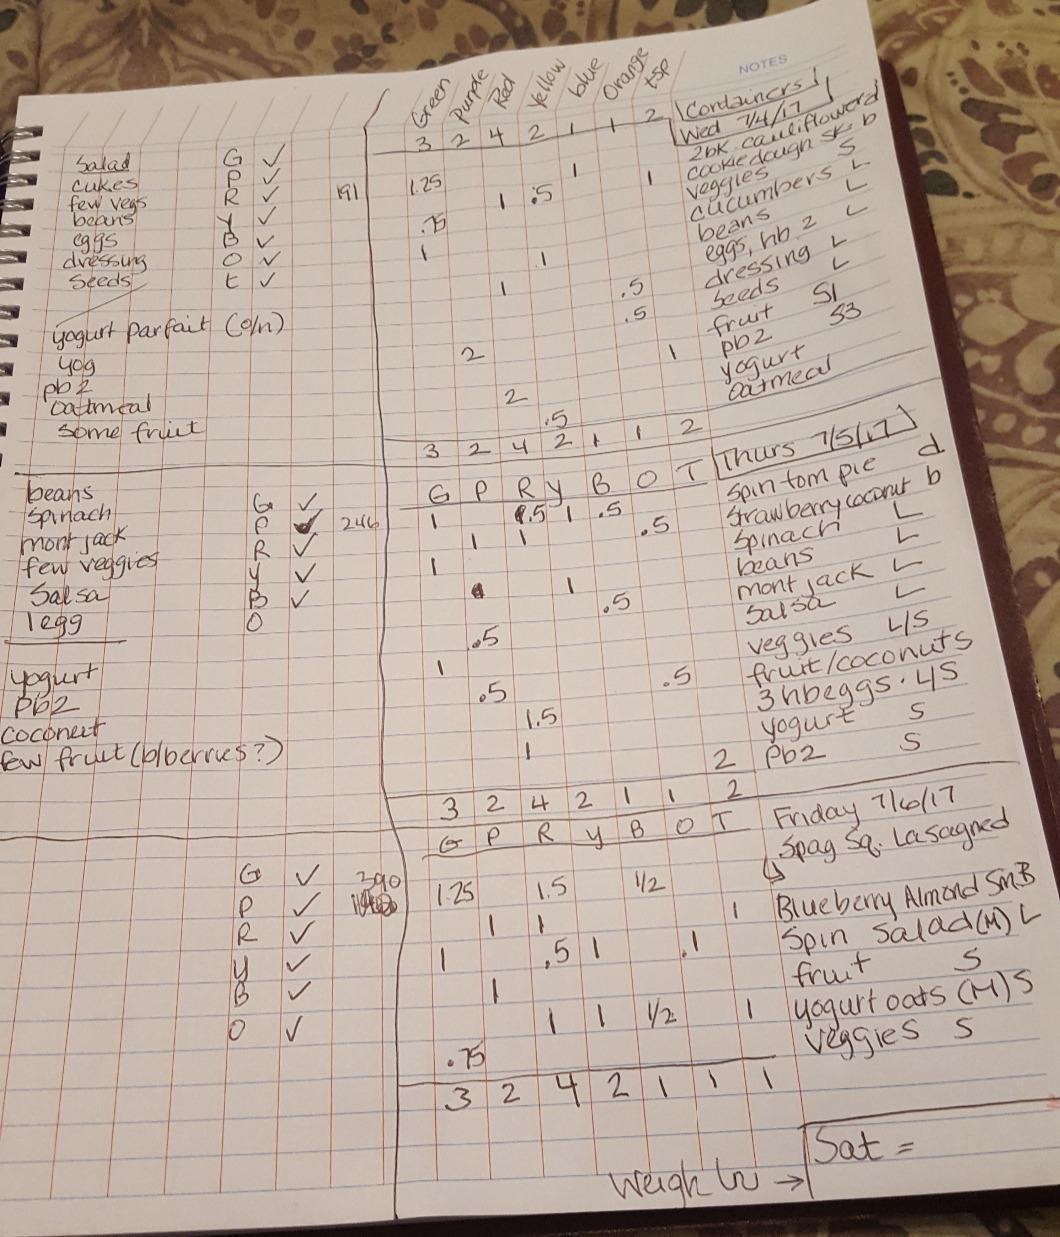 Green Purple Red Yellow blue Orange tsp
NOTES
3 2 4 2 1 1 2
Containers!
Wed 7/4/17
2bk. cauliflower d
cookiedough sk b
veggies S
cucumbers L
beans L
eggs, hb 2 L
dressing L
seeds L
fruit S1
pb2 S3
yogurt
oatmeal
salad G ✓
cukes P ✓
few vegs R ✓ 191
beans Y ✓
eggs B ✓
dressing O ✓
seeds t ✓
yogurt parfait (o/n)
yog
pb2
oatmeal
some fruit
1
1.25 1
1 .5
.75
1 1
1 .5
.5
2 1
2
.5
3 2 4 2 1 1 2
Thurs 7/5/17
G P R Y B O T
beans
spinach G ✓
mont jack P ✓ 246
few veggies R ✓
Salsa Y ✓
1egg B ✓
O
yogurt
pb2
coconut
few fruit (b/berries?)
1 .5 1 .5 spin tom pie d
1 1 .5 strawberry coconut b
1 spinach L
1 beans L
.5 mont jack L
.5 salsa L
1 veggies L/S
.5 .5 fruit/coconut S
1.5 3 hb eggs. L/S
1 yogurt S
2 pb2 S
3 2 4 2 1 1 2
G P R Y B O T
Friday 7/6/17
Spag Sq. Lasagne d
G ✓ 390
P ✓
R ✓
Y ✓
B ✓
O ✓
1.25 1.5 1/2
1 1 1 Blueberry Almond Sm B
1 .5 1 .1 Spin Salad (M) L
1 fruit S
1 1 1/2 1 yogurt oats (M) S
.75 veggies S
3 2 4 2 1 1 1
Weigh In →
Sat =